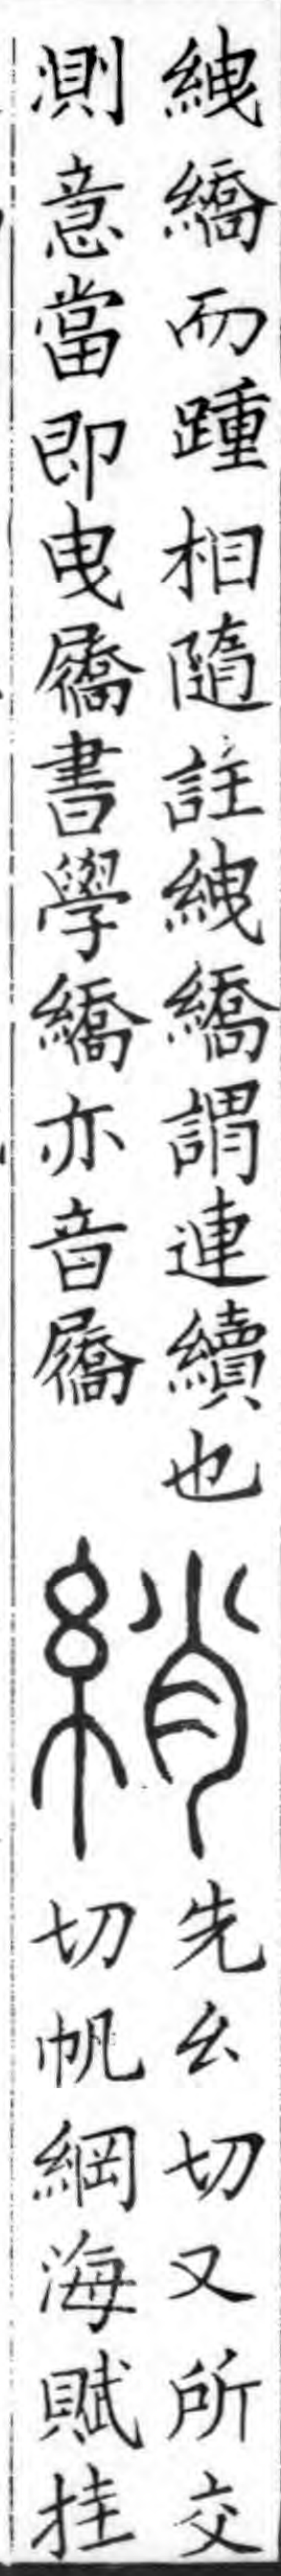 絏繑而踵相隨註絏繑謂連續也
測意當即曳屩書學繑亦音屩
綃
先幺切又所交
切帆綱海賦挂